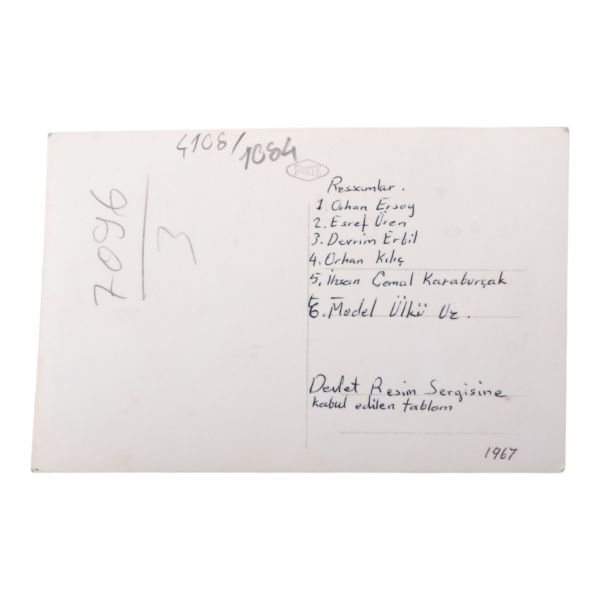 4108/1084
7096
3
Ressamlar.
1. Orhan Ersoy
2. Eşref Üren
3. Devrim Erbil
4. Orhan Kılıç
5. İhsan Cemal Karaburçak
6. Model Ülkü Uz.
Devlet Resim Sergisine
kabul edilen tablom
1967